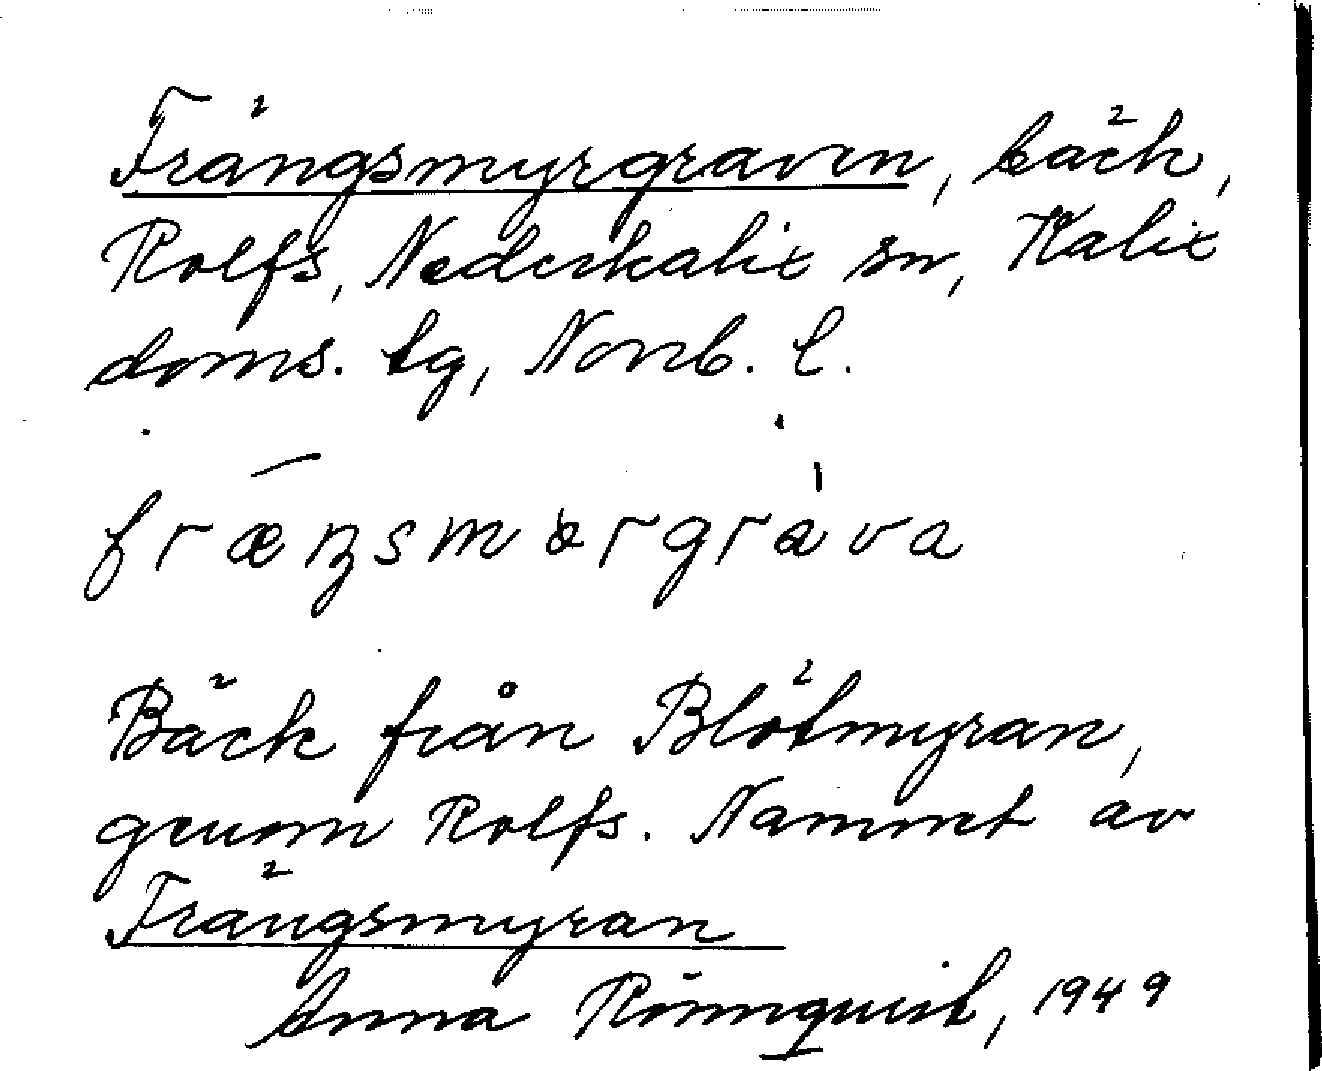 Frängsmyrgraven, bäck,
Rolfs, Nederkalix sn, Kalix
doms. tg, Norrb. l.
fræŋsmørgráva
Bäck från Blötmyran,
genom Rolfs. Namnet av
Frängsmyran
Anna Rönnquist, 1949